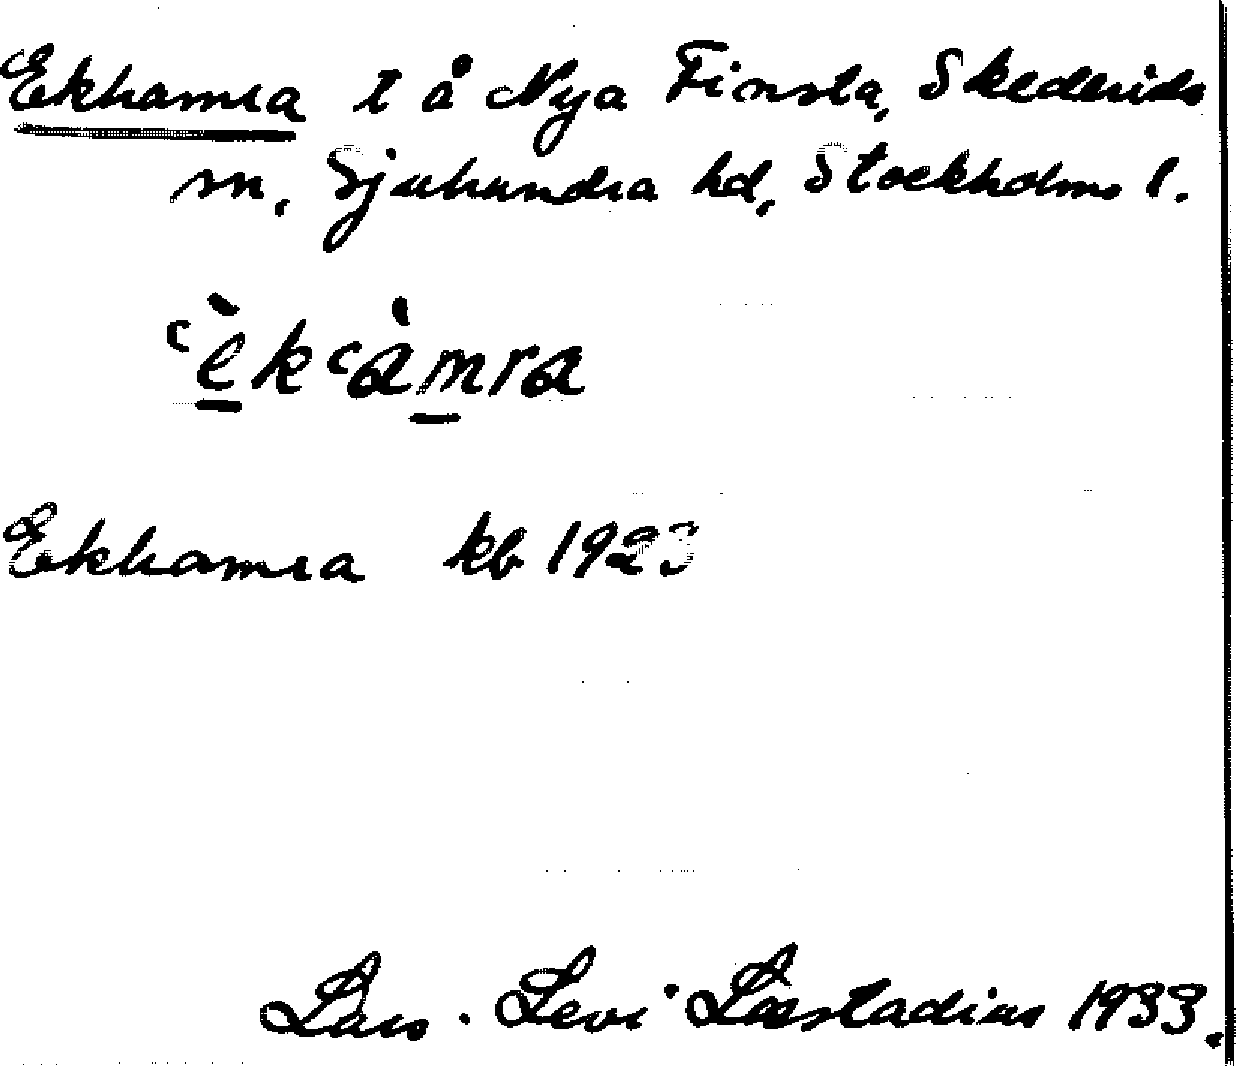 Ekhamra t å Nya Finsta, Skederids
sn, Sjuhundra hd, Stockholms l.
ʿèkʿàmra
Ekhamra kb 1923
Lars-Levi Læstadius 1933.